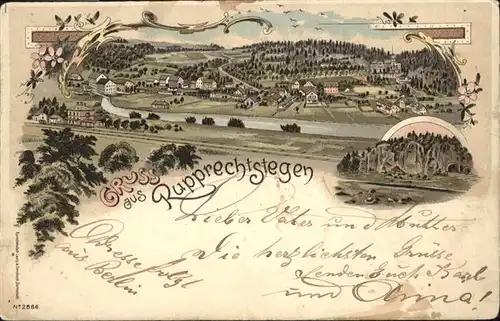 Gruss
aus
Rupprechtstegen
Lieber Vater und Mutter
Die herzlichsten Grüsse
senden Euch Karl
und Anna!
Adresse folgt
aus Berlin
No 2866